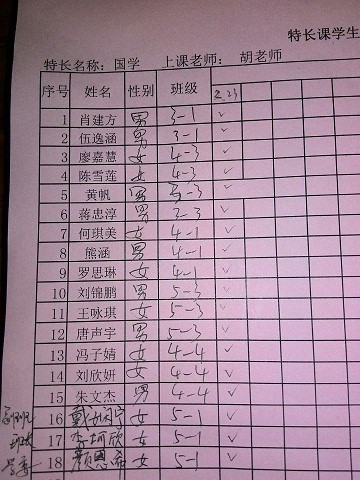 特长课学生
特长名称：国学 上课老师：胡老师
序号 姓名 性别 班级 2.23
1 肖建方 男 3-1 ✓
2 伍逸涵 男 3-1 ✓
3 廖嘉慧 女 4-3 ✓
4 陈雪莲 女 4-3 ✓
5 黄帆 男 3-3
6 蒋忠淳 男 3-3 ✓
7 何琪美 女 4-1 ✓
8 熊涵 男 4-1 ✓
9 罗思琳 女 4-1 ✓
10 刘锦鹏 男 5-3 ✓
11 王咏琪 女 5-3 ✓
12 唐声宇 男 5-3 ✓
13 冯子婧 女 4-4 ✓
14 刘欣妍 女 4-4 ✓
15 朱文杰 男 4-4 ✓
16 戴娴宁 女 5-1 ✓
17 李柯欣 女 5-1 ✓
18 颜恩希 女 5-1 ✓